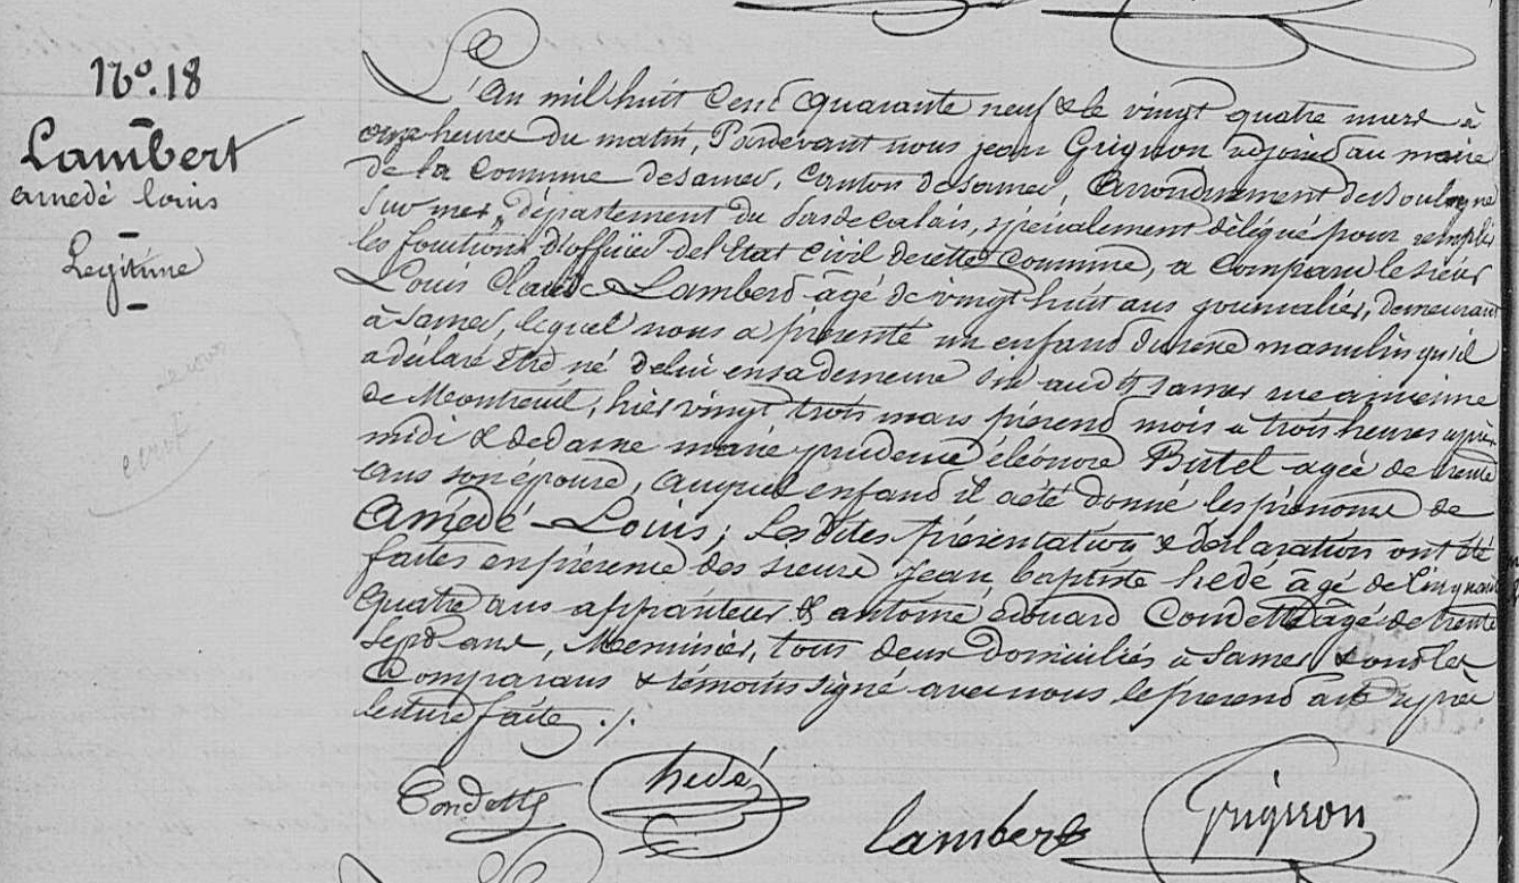 No. 18
Lambert
amedé louis
Legitime
L'an mil huit Cent quarante neuf & le vingt quatre mars à
onze heures du matin, Pardevant nous jean Grignon adjoint au maire
de la Commune de samer, Canton de samer, Arrondissement de Boulogne
sur mer, département du Pas de calais, spécialement délégué pour remplir
les fonctions d'officier de l'Etat Civil de cette Commune, a Comparu le sieur
Louis Claude Lambert âgé de vingt huit ans journalier, demeurant
à Samer, lequel nous a présenté un enfant du sexe masculin qu'il
a déclaré être né de lui en sa demeure sise audit samer rue ancienne
de Montreuil, hier vingt trois mars présent mois à trois heures après
midi & de dame marie prudence éléonore Butel agée de trente
ans son épouse, auquel enfant il a été donné les prénoms de
Amédé Louis; Lesdites présentation & déclaration ont été
faites en présence des sieurs Jean baptiste hedé âgé de Cinquante
quatre ans appariteur & antoine édouard Condette âgé de trente
sept ans, Menuisier, tous deux Domiciliés à Samer, & ont les
Comparans & témoins signé avec nous le présent acte après
lecture faite ./.
Condette hedé
lambert Grignon